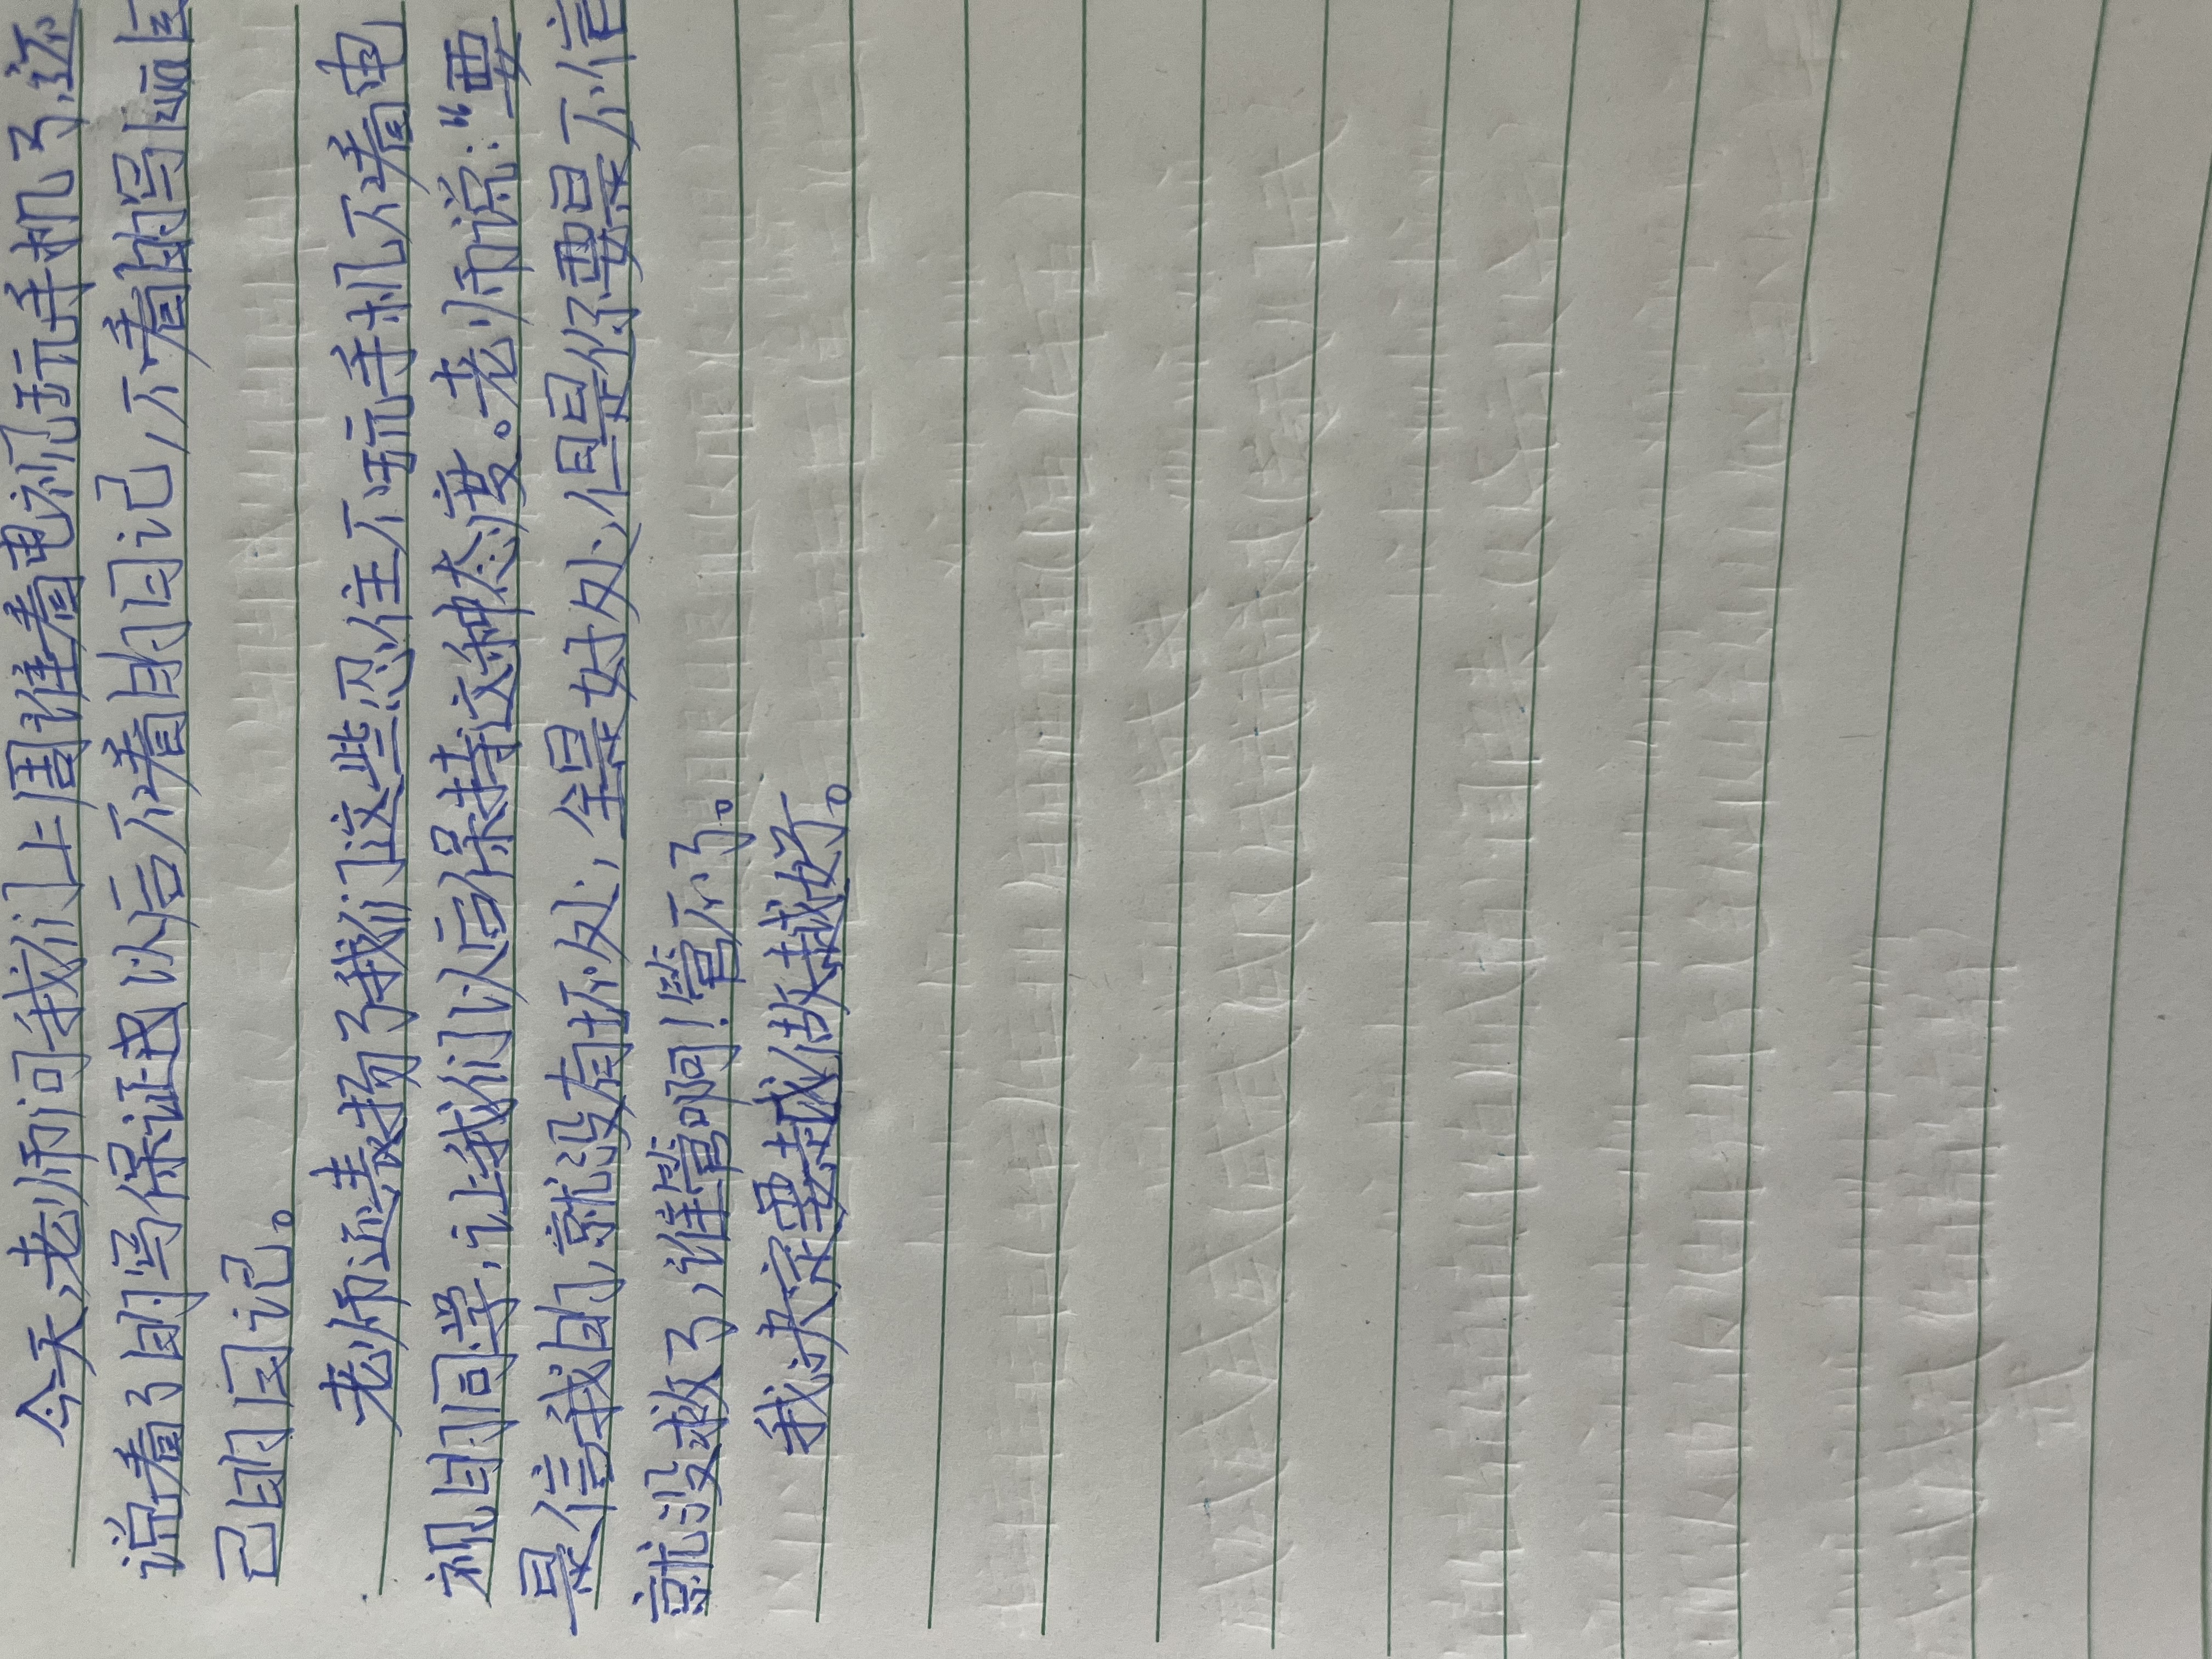 今天,老师问我们上周谁看电视玩手机了,还
说看了的写保证书以后不看的日记,不看的写画自
己的日记。
老师还表扬了我们这些忍住不玩手机不看电
视的同学,让我们以后保持这种态度。老师说:“要
是信我的,就没有坏处,全是好处,但是你要是不信
就没救了,谁管啊!管不了。
我决定要越做越好。